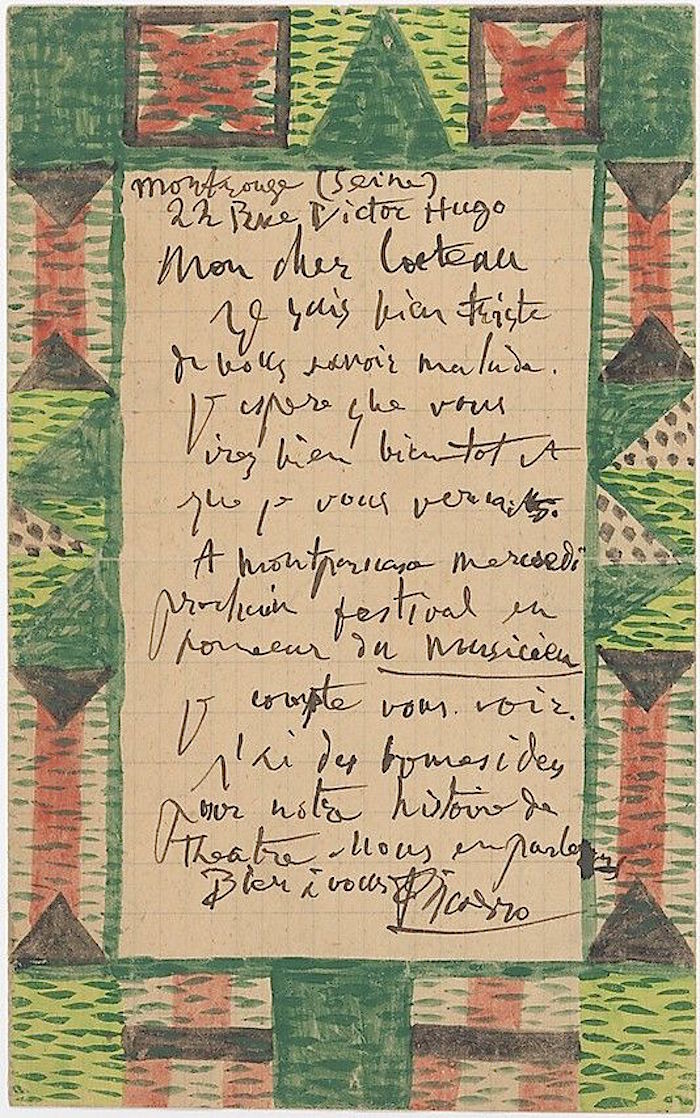 Montrouge (Seine)
22 Rue Victor Hugo
Mon cher Cocteau
Je suis bien triste
de vous savoir malade.
J espere que vous
irez bien bientot et
que je vous verrai
A Montparnasse mercredi
prochain festival en
honneur du musicien
je compte vous voir.
j'ai des bonnes idees
pour notre histoire de
theatre. Nous en parlerons
Bien à vous Picasso